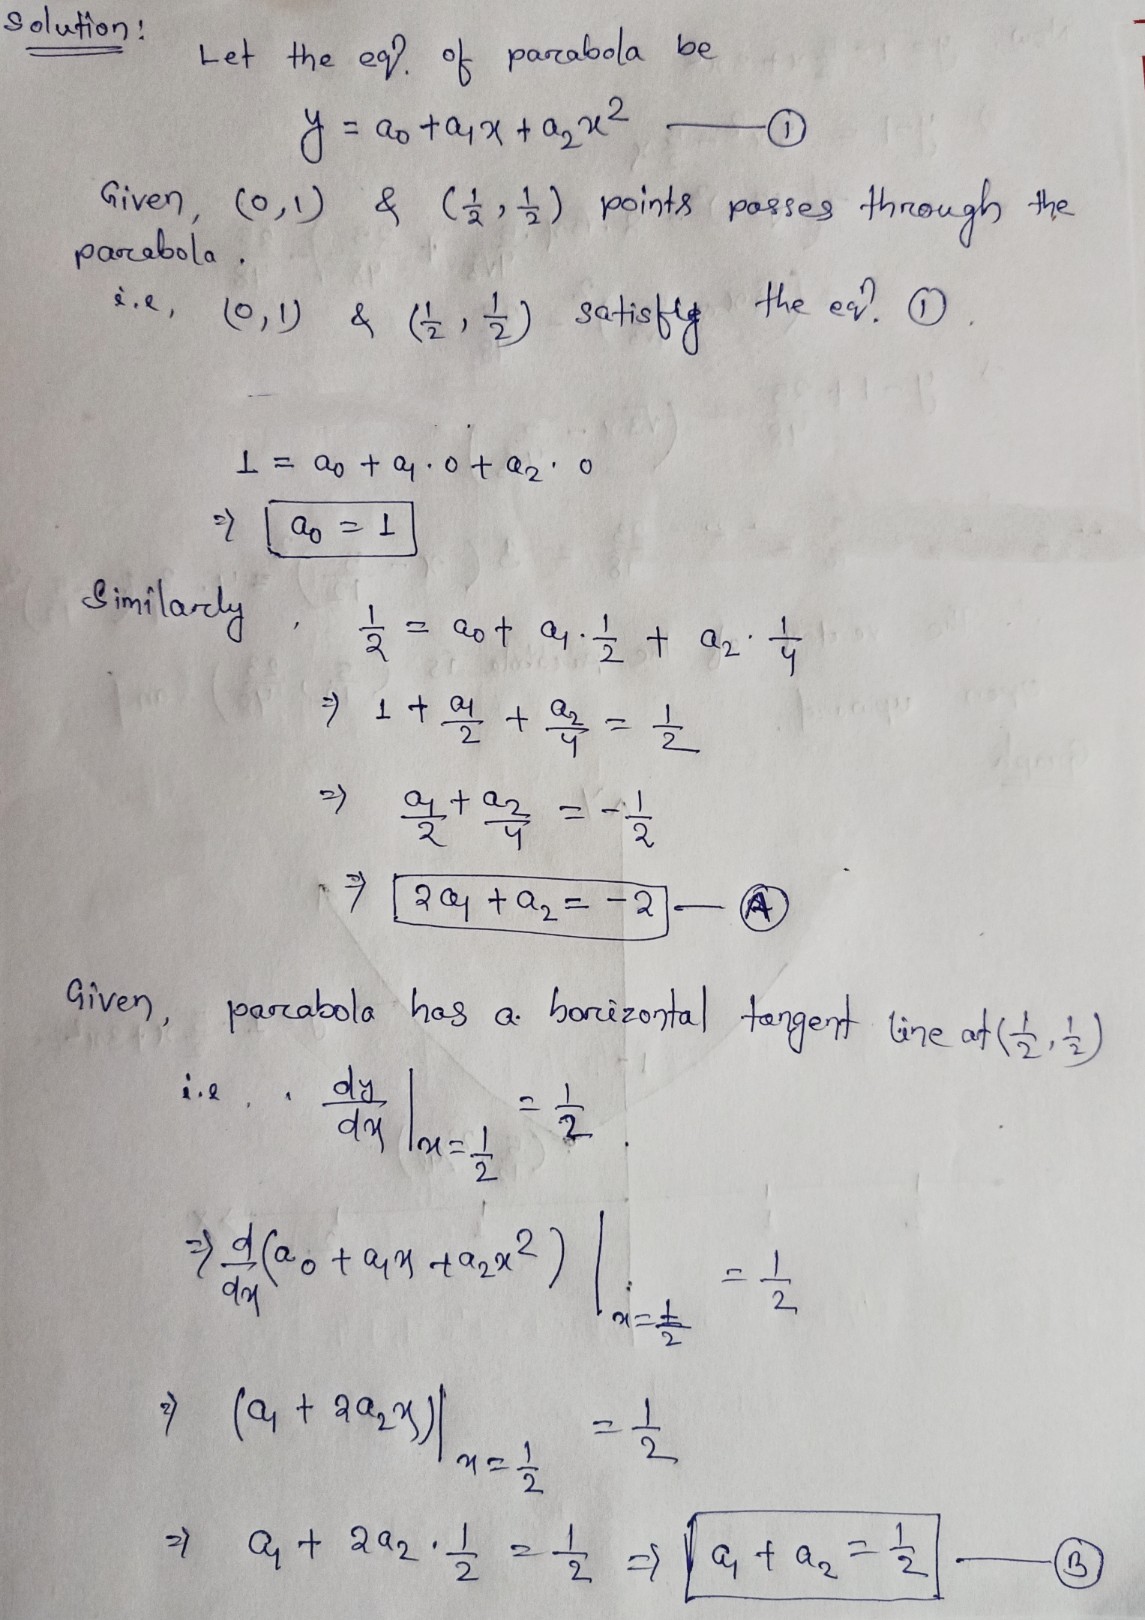 Solution:
Let the eqⁿ. of parabola be
y = a₀ + a₁x + a₂x² —— ①
Given, (0,1) & (1/2, 1/2) points passes through the
parabola.
i.e, (0,1) & (1/2, 1/2) satisfy the eqⁿ. ①.
1 = a₀ + a₁·0 + a₂·0
⇒ a₀ = 1
Similarly, 1/2 = a₀ + a₁·1/2 + a₂·1/4
⇒ 1 + a₁/2 + a₂/4 = 1/2
⇒ a₁/2 + a₂/4 = -1/2
⇒ 2a₁ + a₂ = -2 — Ⓐ
Given, parabola has a horizontal tangent line at (1/2, 1/2)
i.e., dy/dx |x=1/2 = 1/2
⇒ d/dx (a₀ + a₁x + a₂x²) |x=1/2 = 1/2
⇒ (a₁ + 2a₂x)|x=1/2 = 1/2
⇒ a₁ + 2a₂·1/2 = 1/2 ⇒ a₁ + a₂ = 1/2 —— Ⓑ